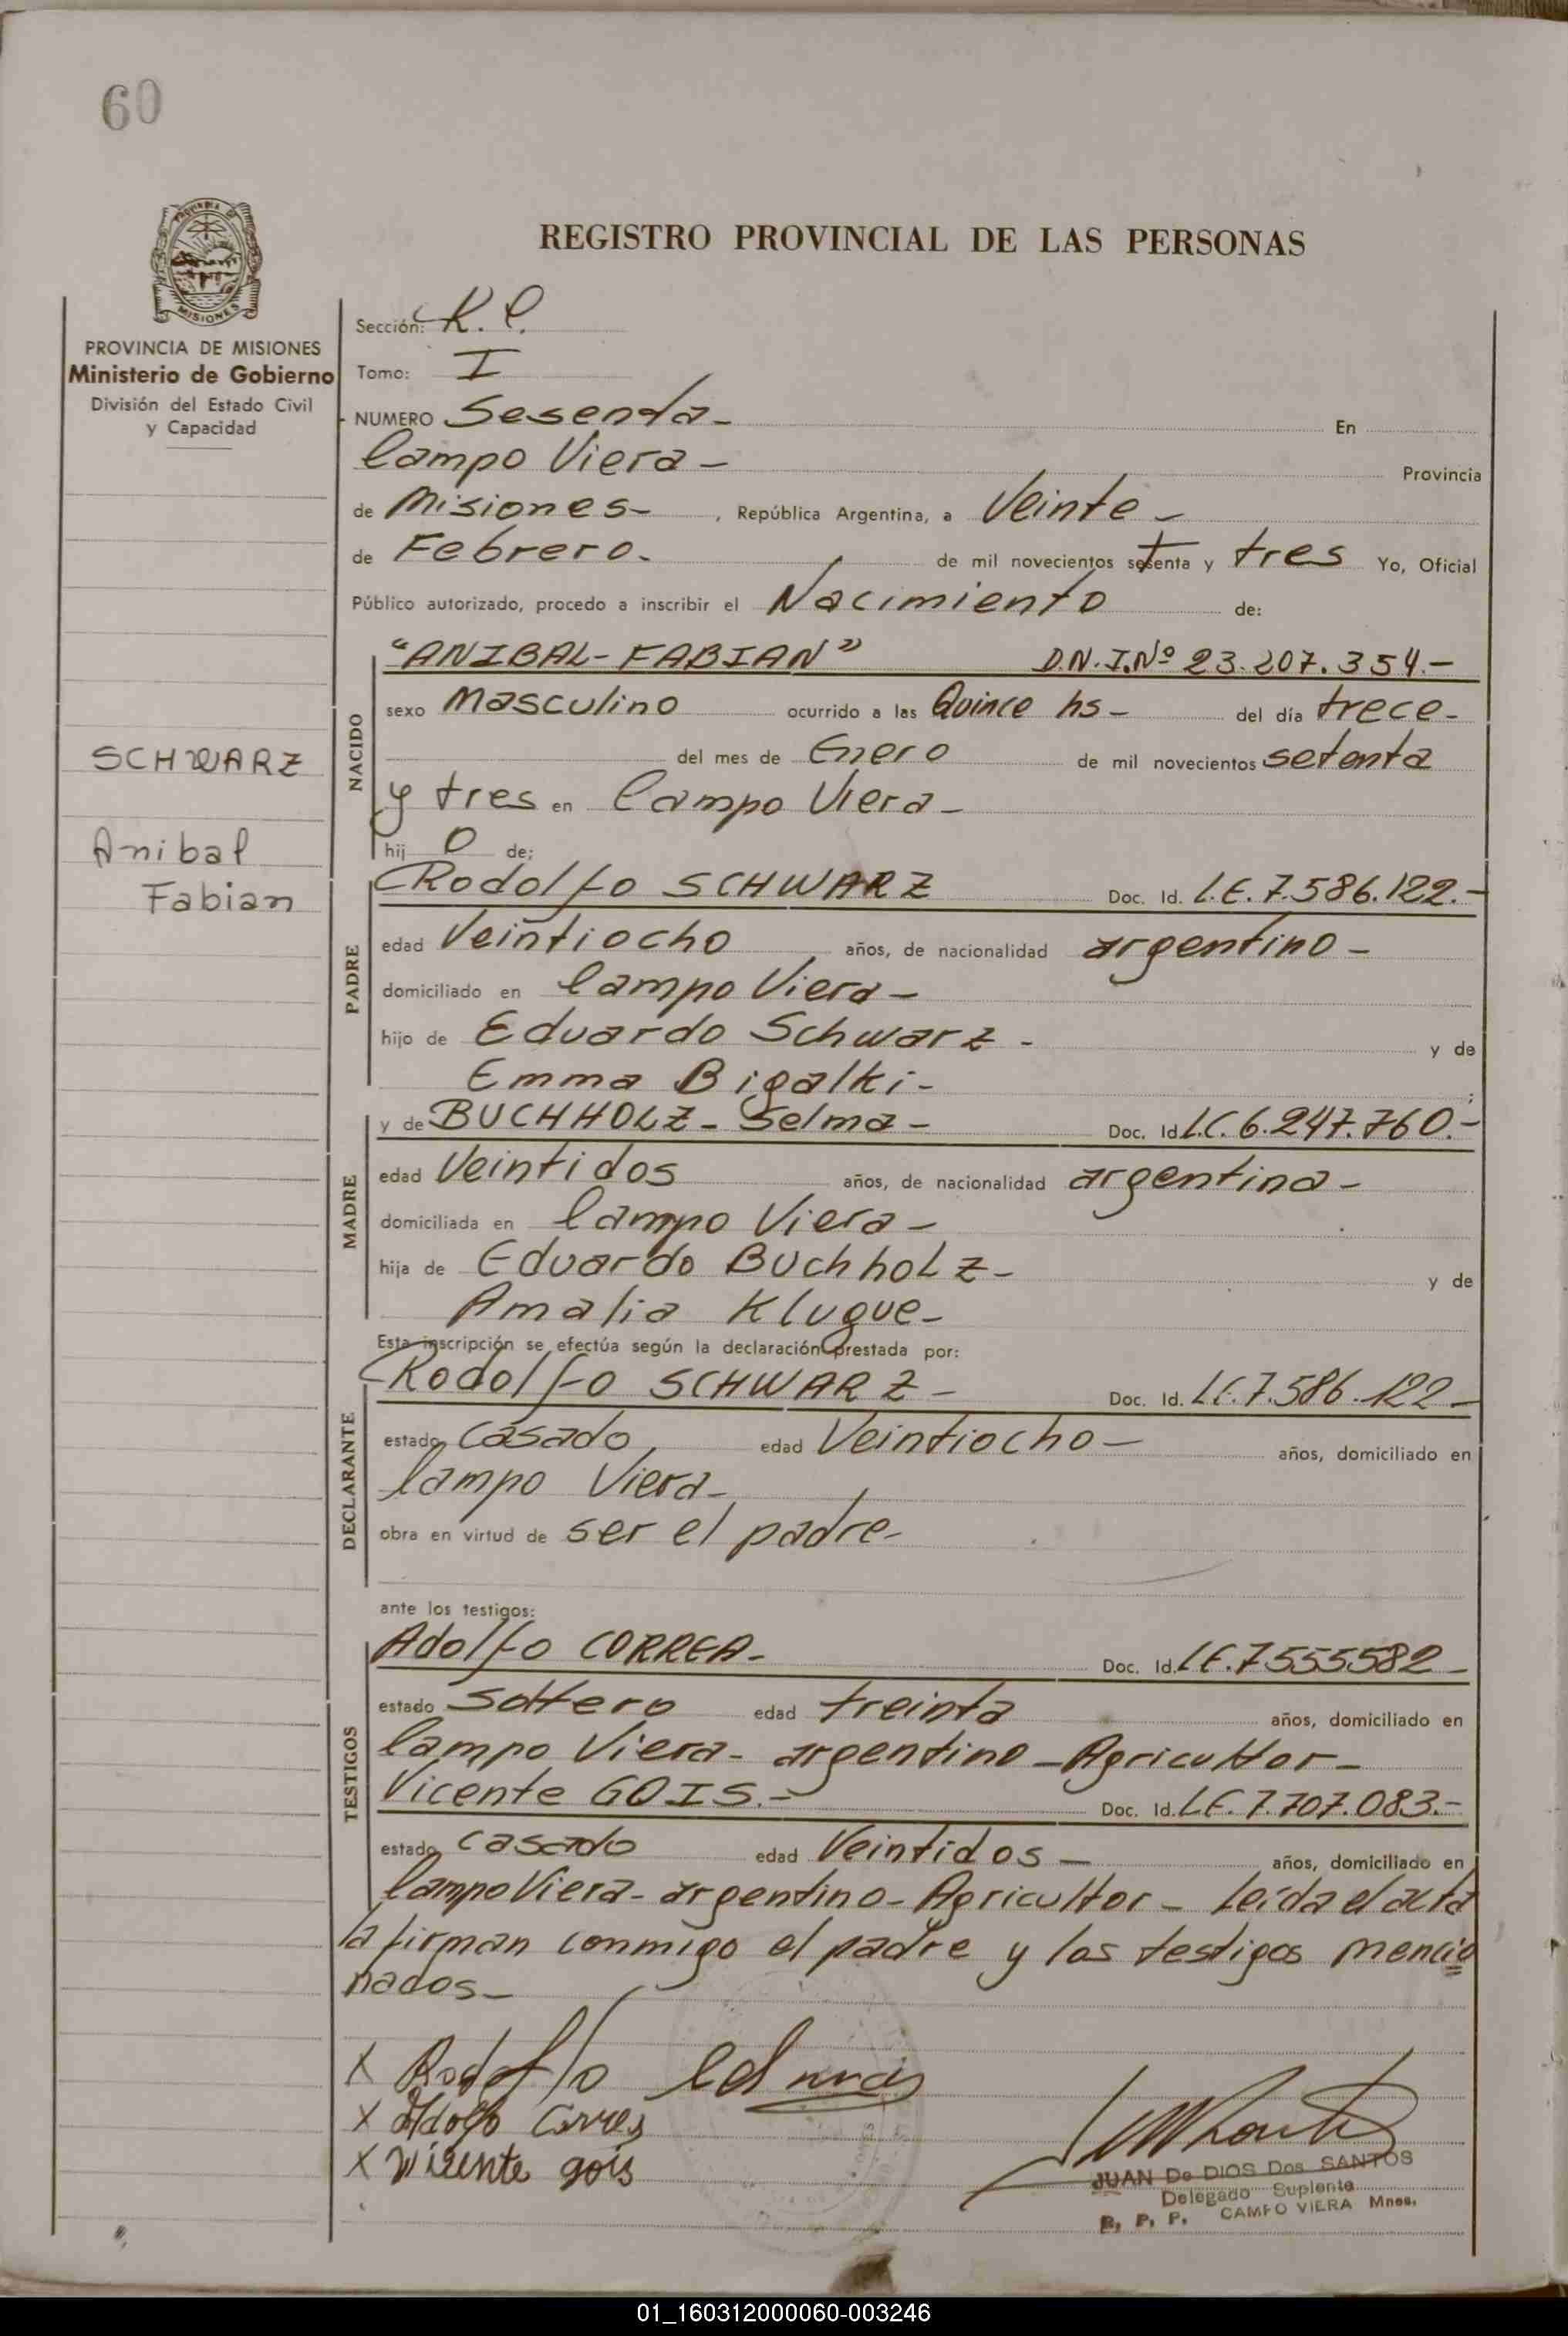 60
PROVINCIA DE
MISIONES
PROVINCIA DE MISIONES
Ministerio de Gobierno
División del Estado Civil
y Capacidad
SCHWARZ
Anibal
Fabian
REGISTRO PROVINCIAL DE LAS PERSONAS
Sección:
Tomo: I
NUMERO Sesenta- En
Campo Viera- Provincia
de Misiones-, República Argentina, a Veinte-
de Febrero. de mil novecientos setenta y tres Yo, Oficial
Público autorizado, procedo a inscribir el Nacimiento de:
NACIDO
"ANIBAL-FABIAN" D.N.I.Nº 23.207.354.-
sexo Masculino ocurrido a las Quince hs- del día trece-
del mes de Enero de mil novecientos setenta
y tres en Campo Viera-
hij o de;
PADRE
Rodolfo SCHWARZ Doc. Id. L.E. 7.586.122.-
edad Veintiocho años, de nacionalidad argentino-
domiciliado en Campo Viera-
hijo de Eduardo Schwarz- y de
Emma Bigalki- ;
MADRE
y de BUCHHOLZ- Selma- Doc. Id L.C. 6.247.760.-
edad Veintidos años, de nacionalidad argentina-
domiciliada en Campo Viera-
hija de Eduardo BuchholZ- y de
Amalia Klugue-
Esta inscripción se efectúa según la declaración prestada por:
DECLARANTE
Rodolfo SCHWARZ- Doc. Id. L.E. 7.586.122-
estado Casado, edad Veintiocho- años, domiciliado en
Campo Viera-
obra en virtud de ser el padre-
ante los testigos:
TESTIGOS
Adolfo CORREA- Doc. Id. L.E. 7555582-
estado Soltero edad treinta años, domiciliado en
Campo Viera- argentino- Agricultor-
Vicente GOIS.- Doc. Id. L.E. 7.707.083.-
estado casado edad Veintidos- años, domiciliado en
Campo Viera- argentino- Agricultor- Leída el acta
la firman conmigo el padre y los testigos mencio
nados-
X Rodolfo
X Adolfo Correa
X Vicente gois
JUAN De DIOS Dos SANTOS
Delegado Suplente
R. P. P. CAMPO VIERA Mnes.
01_160312000060-003246